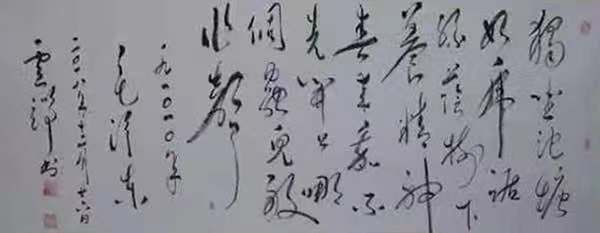 獨坐池塘
如虎踞
綠蔭樹下
養精神
春來我不
先開口哪
個蟲兒敢
作聲
一九一〇年
毛澤東
二〇一八年十二月廿六日